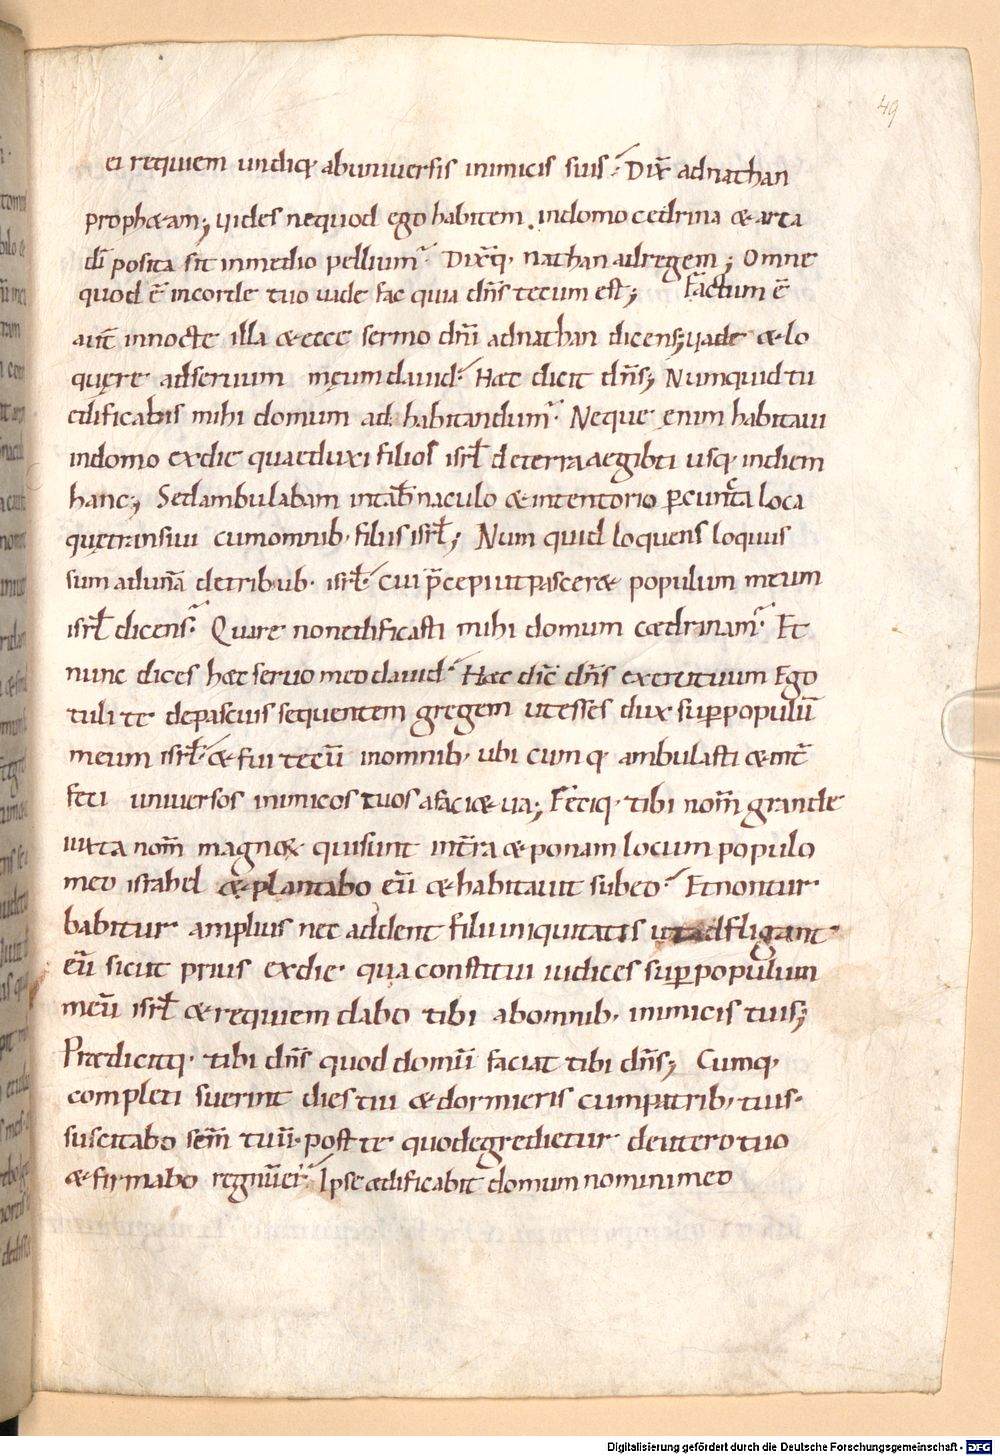 49
ei requiem undiq; abuniuersis inimicis suis; Dix̄ adnathan
prophetam; uides nequod ego habitem indomo cedrina & arca
dī posita sit inmedio pellium; Dix̄q; nathan adregem; Omne
quod ē incorde tuo uade fac quia dn̄s tecum est; Factum ē
aut̄ innocte illa & ecce sermo dn̄i adnathan dicens; uade & lo
quere adseruum meum dauid; Haec dicit dn̄s; Numquid tu
edificabis mihi domum ad habitandum; Neque enim habitaui
indomo exdie quaeduxi filios isrł deterraaegipti usq; indiem
hanc; Sedambulabam intab̄naculo & intentorio p̱cuncta loca
quętransiui cumomnib; filiis isrł; Num quid loquens loquus
sum adunā detribub; isrł; cui p̄cepi utpascer& populum meum
isrł dicens; Quare nonedificasti mihi domum caedrinam; Et
nunc dices haec seruo meo dauid; Haec dic̄ dn̄s exercituum Ego
tuli te depascuis sequentem gregem utesses dux sup̱populū
meum isrł; & fui tecū inomnib; ubi cum q; ambulasti & int̄
feci uniuersos inimicos tuos afaci& ua; Feciq; tibi nom̄ grande
iuxta nom̄ magnor̄ quisunt int̄ra & ponam locum populo
meo israhel & plantabo eū & habitauit subeo; Etnontur
babitur amplius nec addent filii iniquitatis utadfligant
eū sicut prius exdie qua constitui iudices sup̱populum
meū isrł & requiem dabo tibi abomnib; inimicis tuis;
Praedicitq; tibi dn̄s quod domū faciat tibi dn̄s; Cumq;
completi fuerint dies tui & dormieris cumpatrib; tuis
suscitabo sem̄ tuū post te quodegredietur deutero tuo
& firmabo regnūei; Ipse aedificabit domum nomini meo
Digitalisierung gefördert durch die Deutsche Forschungsgemeinschaft - DFG